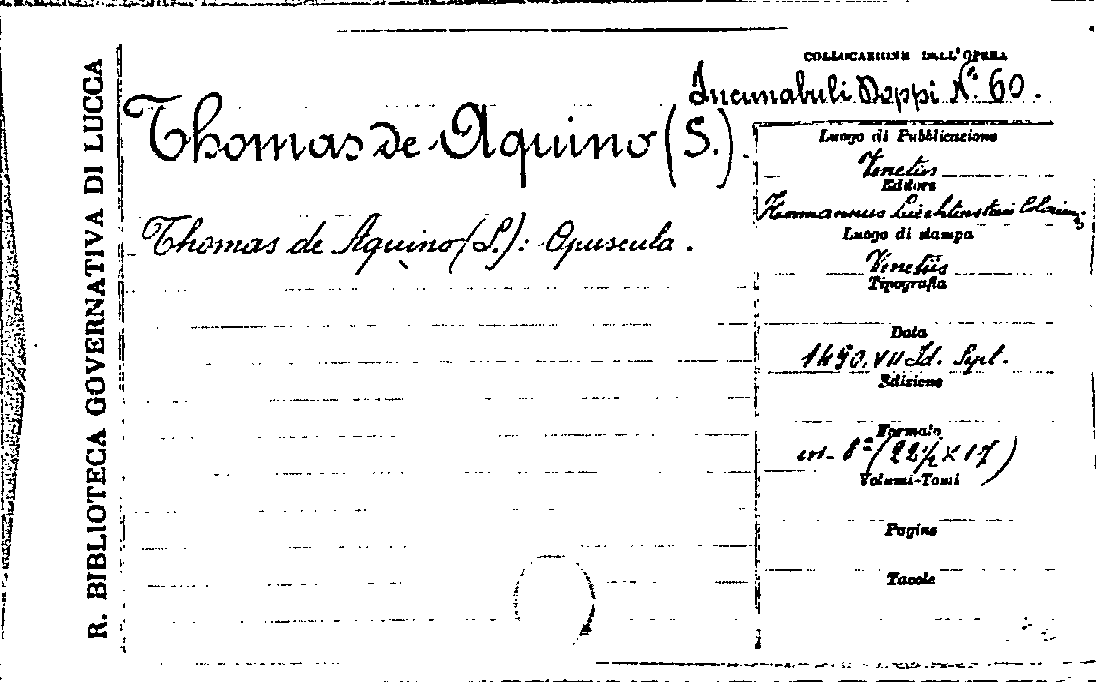 R. BIBLIOTECA GOVERNATIVA DI LUCCA
COLLOCAZIONE DELL'OPERA
Incunabuli Doppi N.° 60.
Thomas de Aquino (S.).
Thomas de Aquino (S.): Opuscula.
Luogo di Pubblicazione
Venetiis
Editore
Hermannus Liechtenstein
Luogo di stampa
Venetiis
Tipografia
Data
1490. VII Id. Sept.
Edizione
Formato
in-8º (22½ x 17)
Volumi-Tomi
Pagine
Tavole